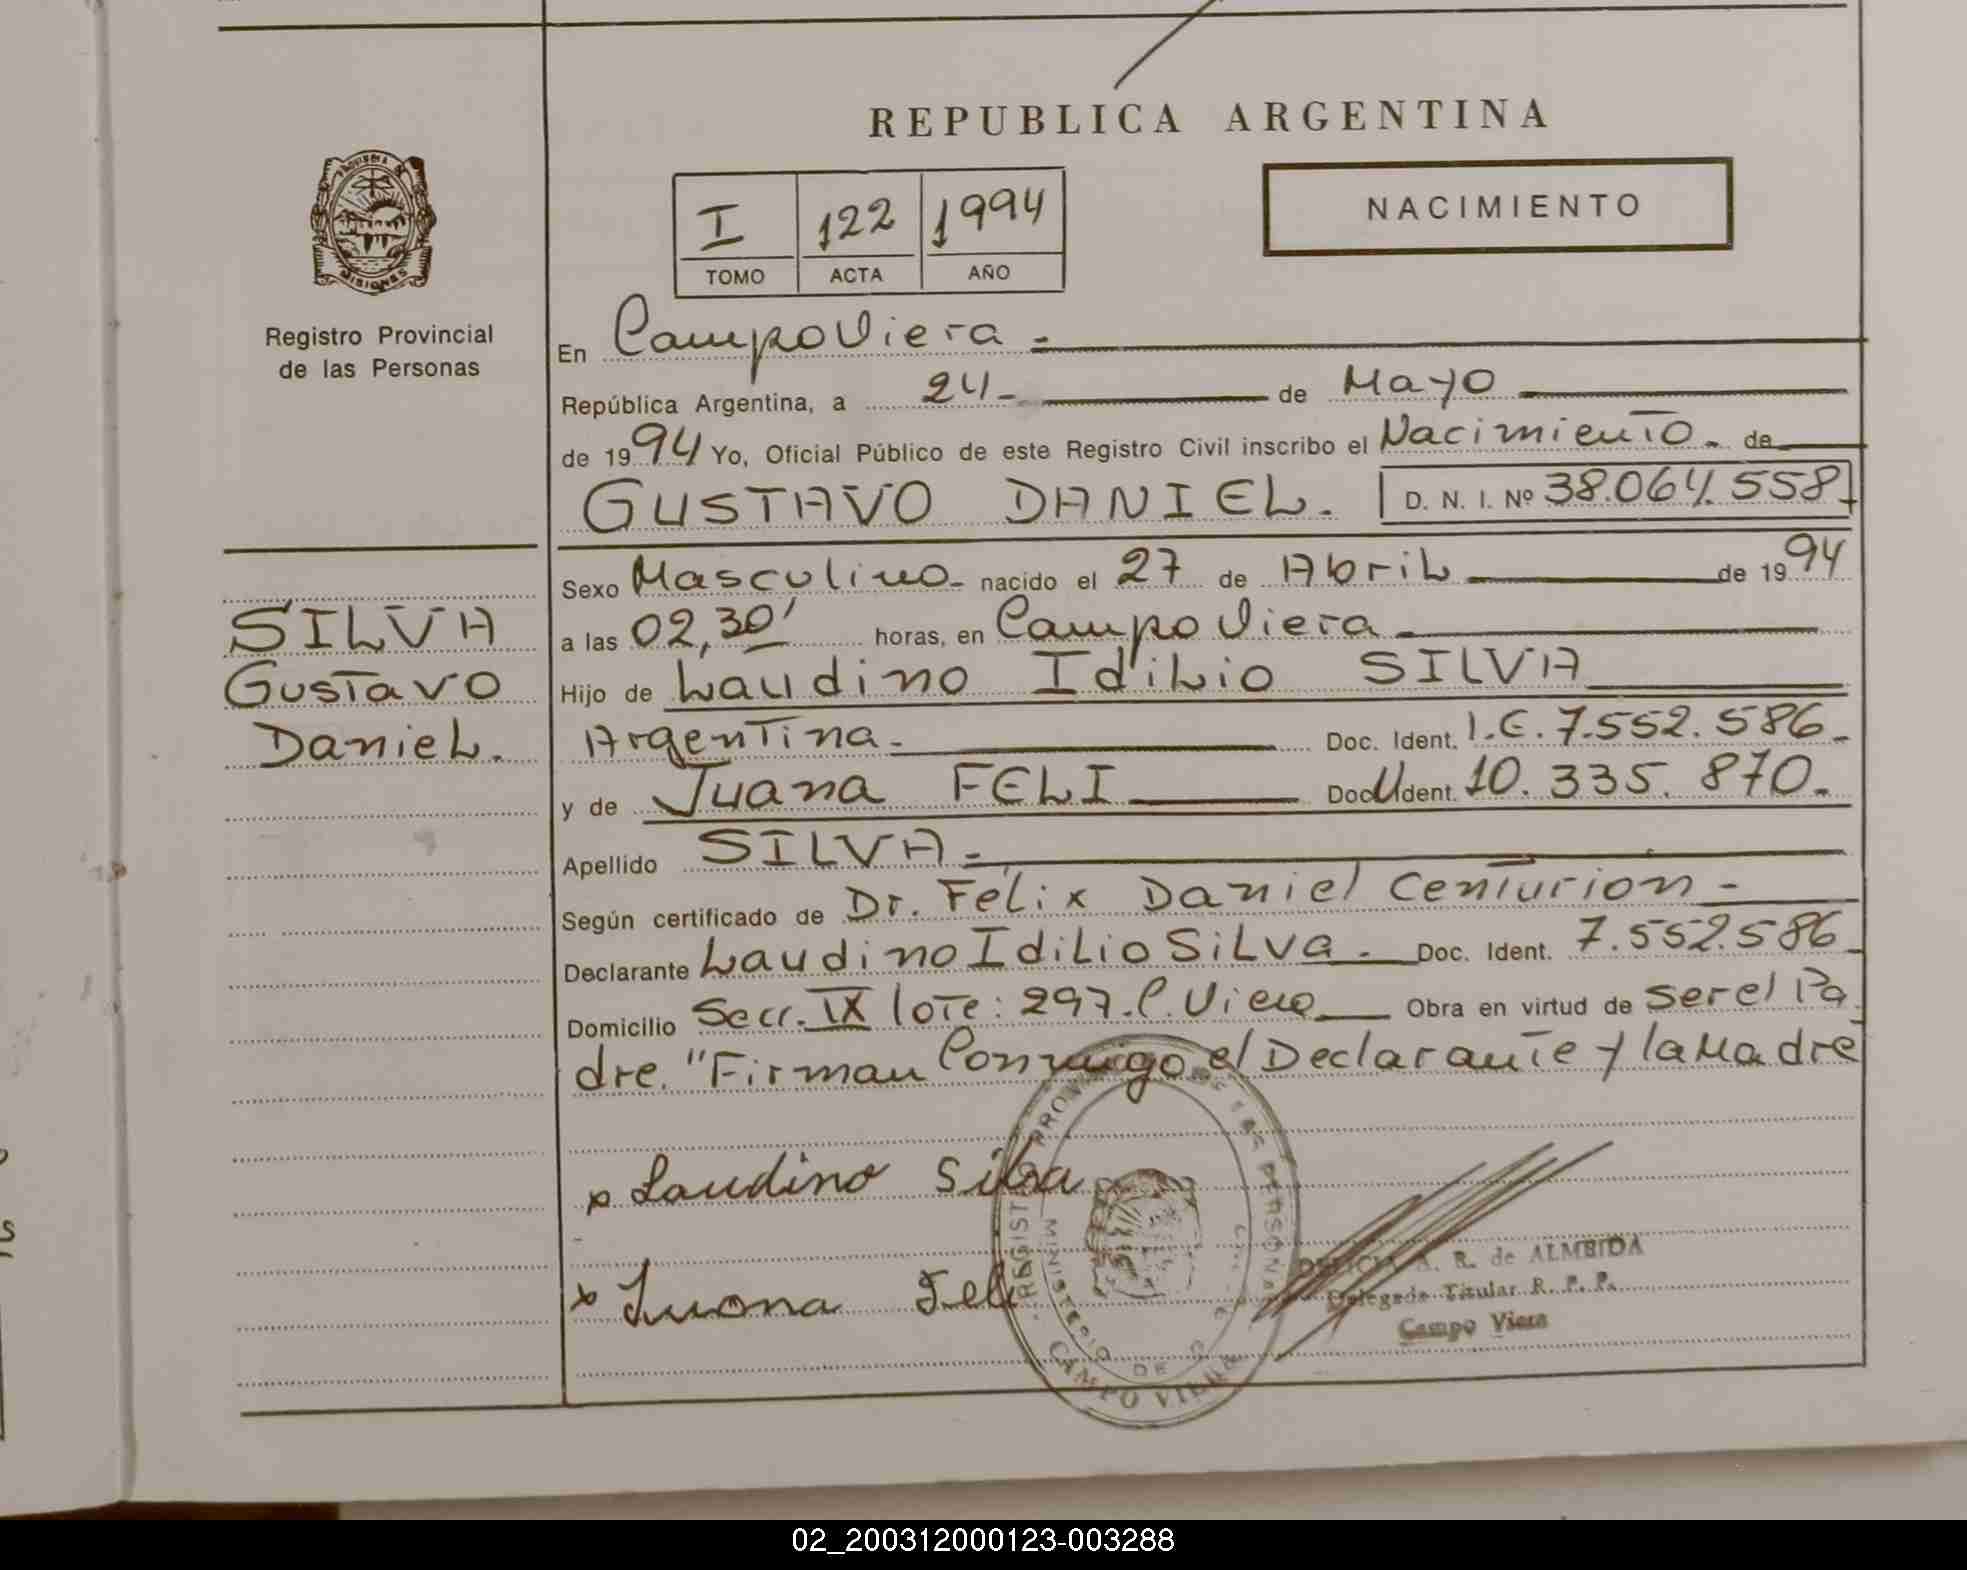 REPUBLICA ARGENTINA
NACIMIENTO
I 122 1994
TOMO ACTA AÑO
PROVINCIA DE
MISIONES
Registro Provincial
de las Personas
En Campo Viera -
República Argentina, a 24- de Mayo
de 1994 Yo, Oficial Público de este Registro Civil inscribo el Nacimiento - de
GUSTAVO DANIEL. D. N. I. Nº 38.064.558
Sexo Masculino - nacido el 27 de Abril de 1994
SILVA
Gustavo
Daniel.
a las 02,30' horas, en Campo Viera -
Hijo de Laudino Idilio SILVA
Argentina - Doc. Ident. 7.552.586 -
y de Juana FELI Doc. Ident. 10.335.870 -
Apellido SILVA -
Según certificado de Dr. Félix Daniel Centurión -
Declarante Laudino Idilio Silva - Doc. Ident. 7.552.586 -
Domicilio Secc. IX lote: 297. C. Viera Obra en virtud de ser el Pa
dre. "Firman Conmigo el Declarante y la Madre
x Laudino Silva
x Juana Feli
REGISTRO PROVINCIAL DE LAS PERSONAS
MINISTERIO DE
CAMPO VIERA
DELICIA A. R. de ALMEIDA
Delegada Titular R. P. P.
Campo Viera
02_200312000123-003288